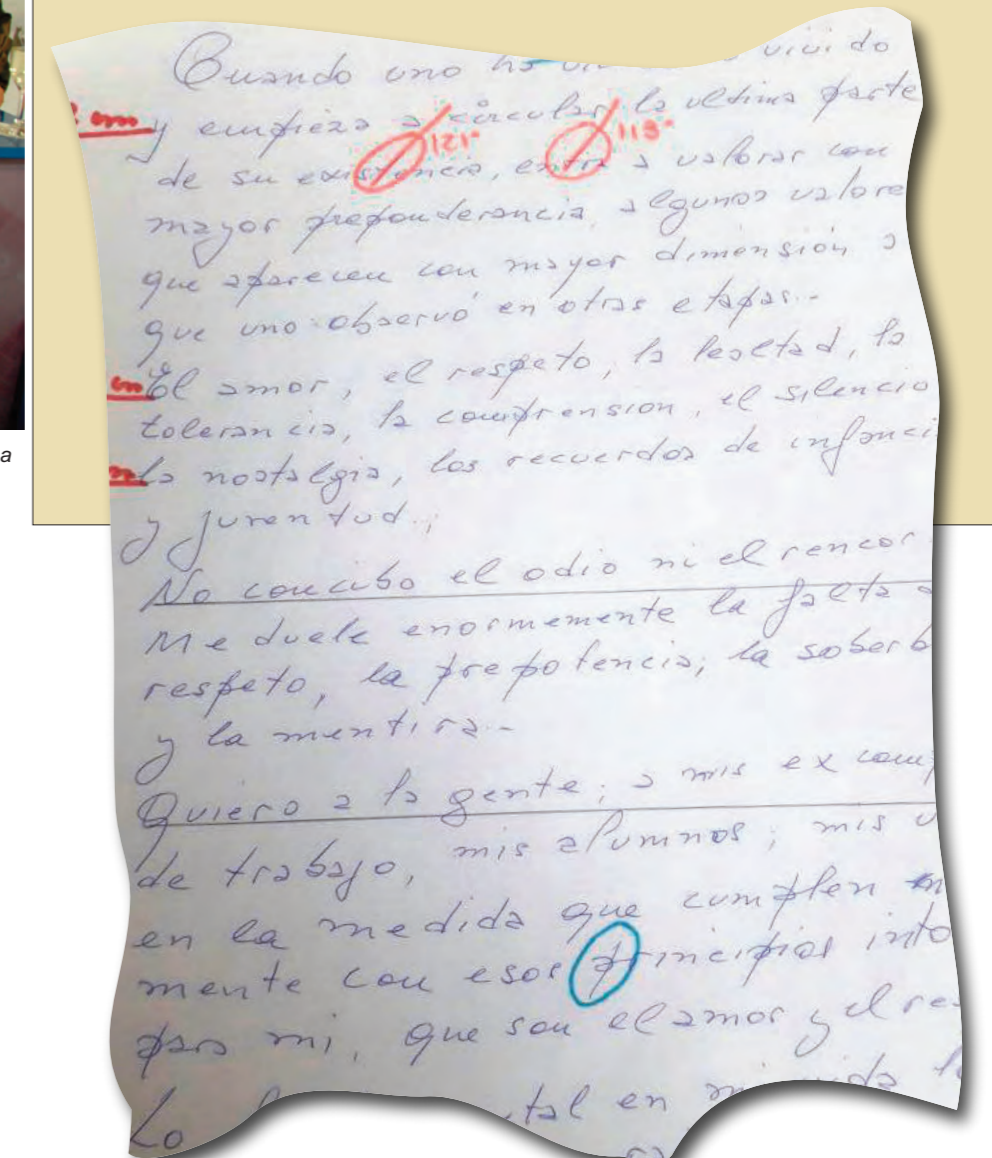 Cuando uno ha vivido
y empieza a circular la ultima parte
121°
113°
de su existencia, entra a valorar con
mayor preponderancia, algunos valore
que aparecen con mayor dimensión a
que uno observó en otras etapas.-
El amor, el respeto, la lealtad, la
tolerancia, la comprension, el silencio
la nostalgia, los recuerdos de infanci
y juventud.;
No concibo el odio ni el rencor.
Me duele enormemente la falta
respeto, la prepotencia; la soberb
y la mentira.-
Quiero a la gente; a mis ex comp
de trabajo, mis alumnos; mis
en la medida que cumplen
mente con esos principios into
para mi, que son el amor y el re
Lo tal en mi vida
a